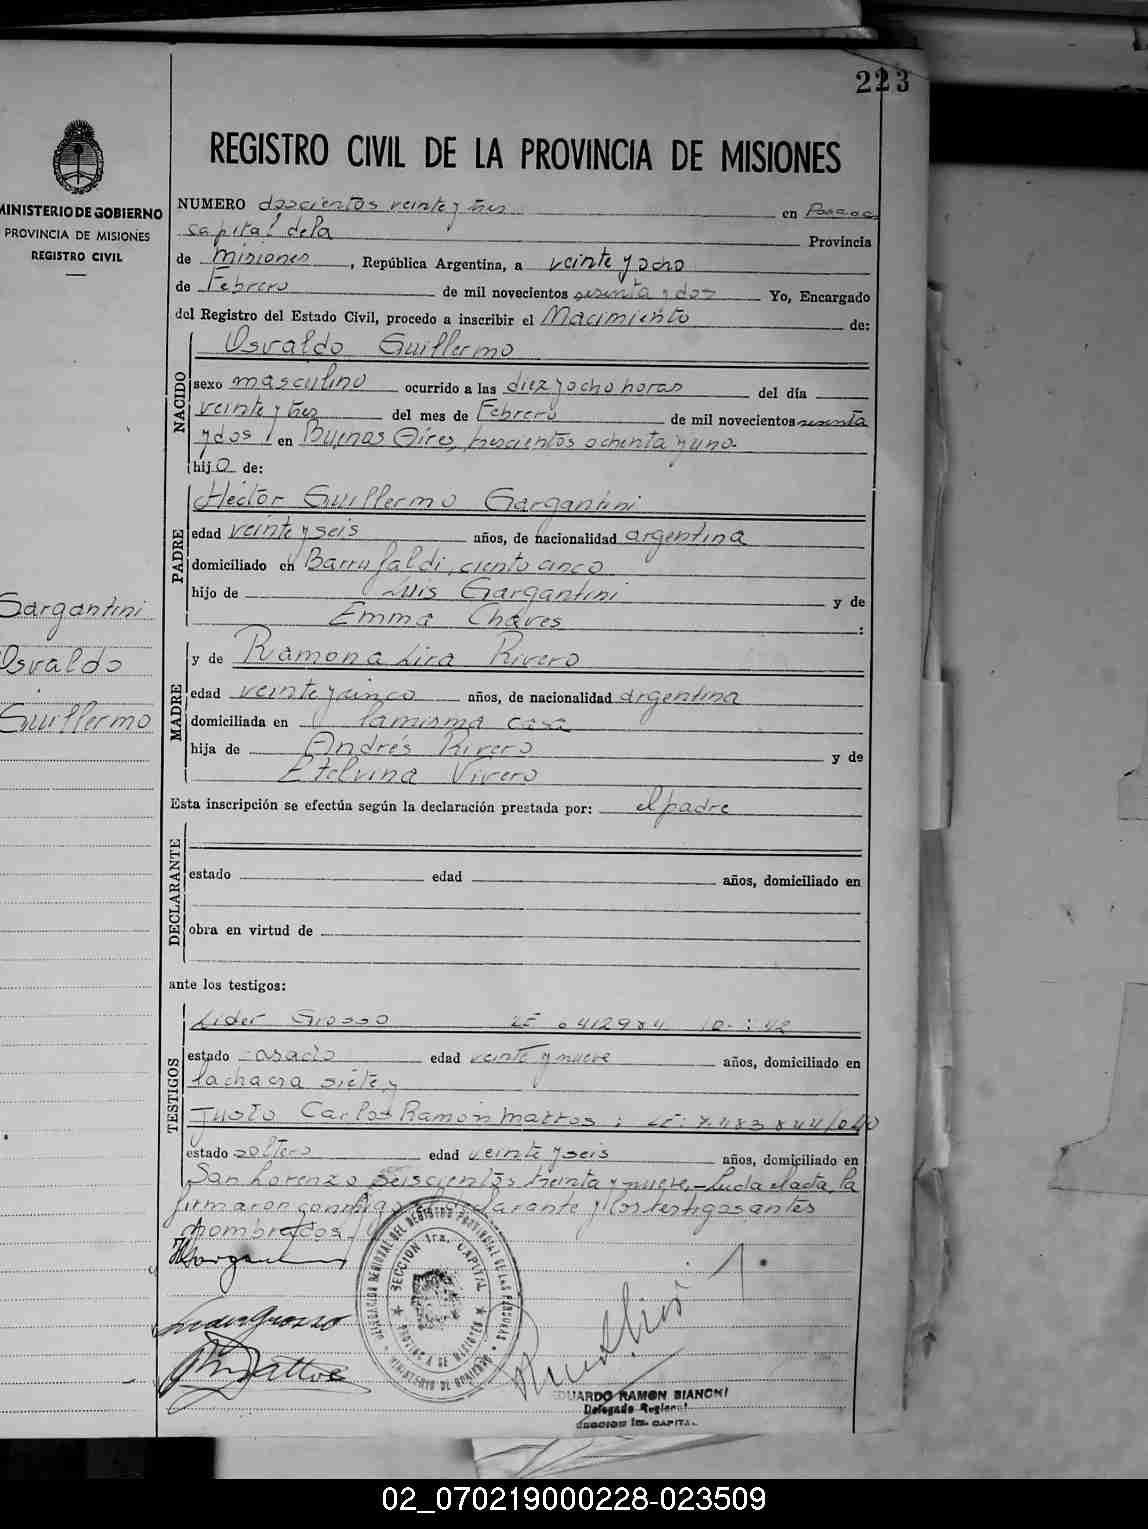 223
REGISTRO CIVIL DE LA PROVINCIA DE MISIONES
MINISTERIO DE GOBIERNO
PROVINCIA DE MISIONES
REGISTRO CIVIL
NUMERO doscientos veinte y tres en
capital de la Provincia
de Misiones, República Argentina, a veinte y ocho
de Febrero de mil novecientos sesenta y dos Yo, Encargado
del Registro del Estado Civil, procedo a inscribir el Nacimiento de:
NACIDO
Osvaldo Guillermo
sexo masculino ocurrido a las diez y ocho horas del día
veinte y tres del mes de Febrero de mil novecientos sesenta
y dos en Buenos Aires, trescientos ochenta y uno.
hijo de:
PADRE
Héctor Guillermo Gargantini
edad veinte y seis años, de nacionalidad argentina
domiciliado en Barrufaldi, ciento cinco
hijo de Luis Gargantini y de
Emma Chaves :
MADRE
y de Ramona Lira Rivero
edad veinte y cinco años, de nacionalidad argentina
domiciliada en la misma casa
hija de Andrés Rivero y de
Etelvina Vivero
Gargantini
Osvaldo
Guillermo
Esta inscripción se efectúa según la declaración prestada por: el padre
DECLARANTE
estado edad años, domiciliado en
obra en virtud de
ante los testigos:
TESTIGOS
Lider Grosso LE
estado casado edad veinte y nueve años, domiciliado en
la chacra siete y
Justo Carlos Ramón Mattos; LE:
estado soltero edad veinte y seis años, domiciliado en
San Lorenzo seiscientos treinta y nueve.- Leida el acta, la
firmaron conmigo declarante y los testigos antes
nombrados.
Lider Grosso
Mattos
SECCION 1ra. CAPITAL
PROVINCIA DE MISIONES
MINISTERIO DE GOBIERNO
EDUARDO RAMON BIANCHI
Delegado Regional
SECCION 1ra. CAPITAL
02_070219000228-023509